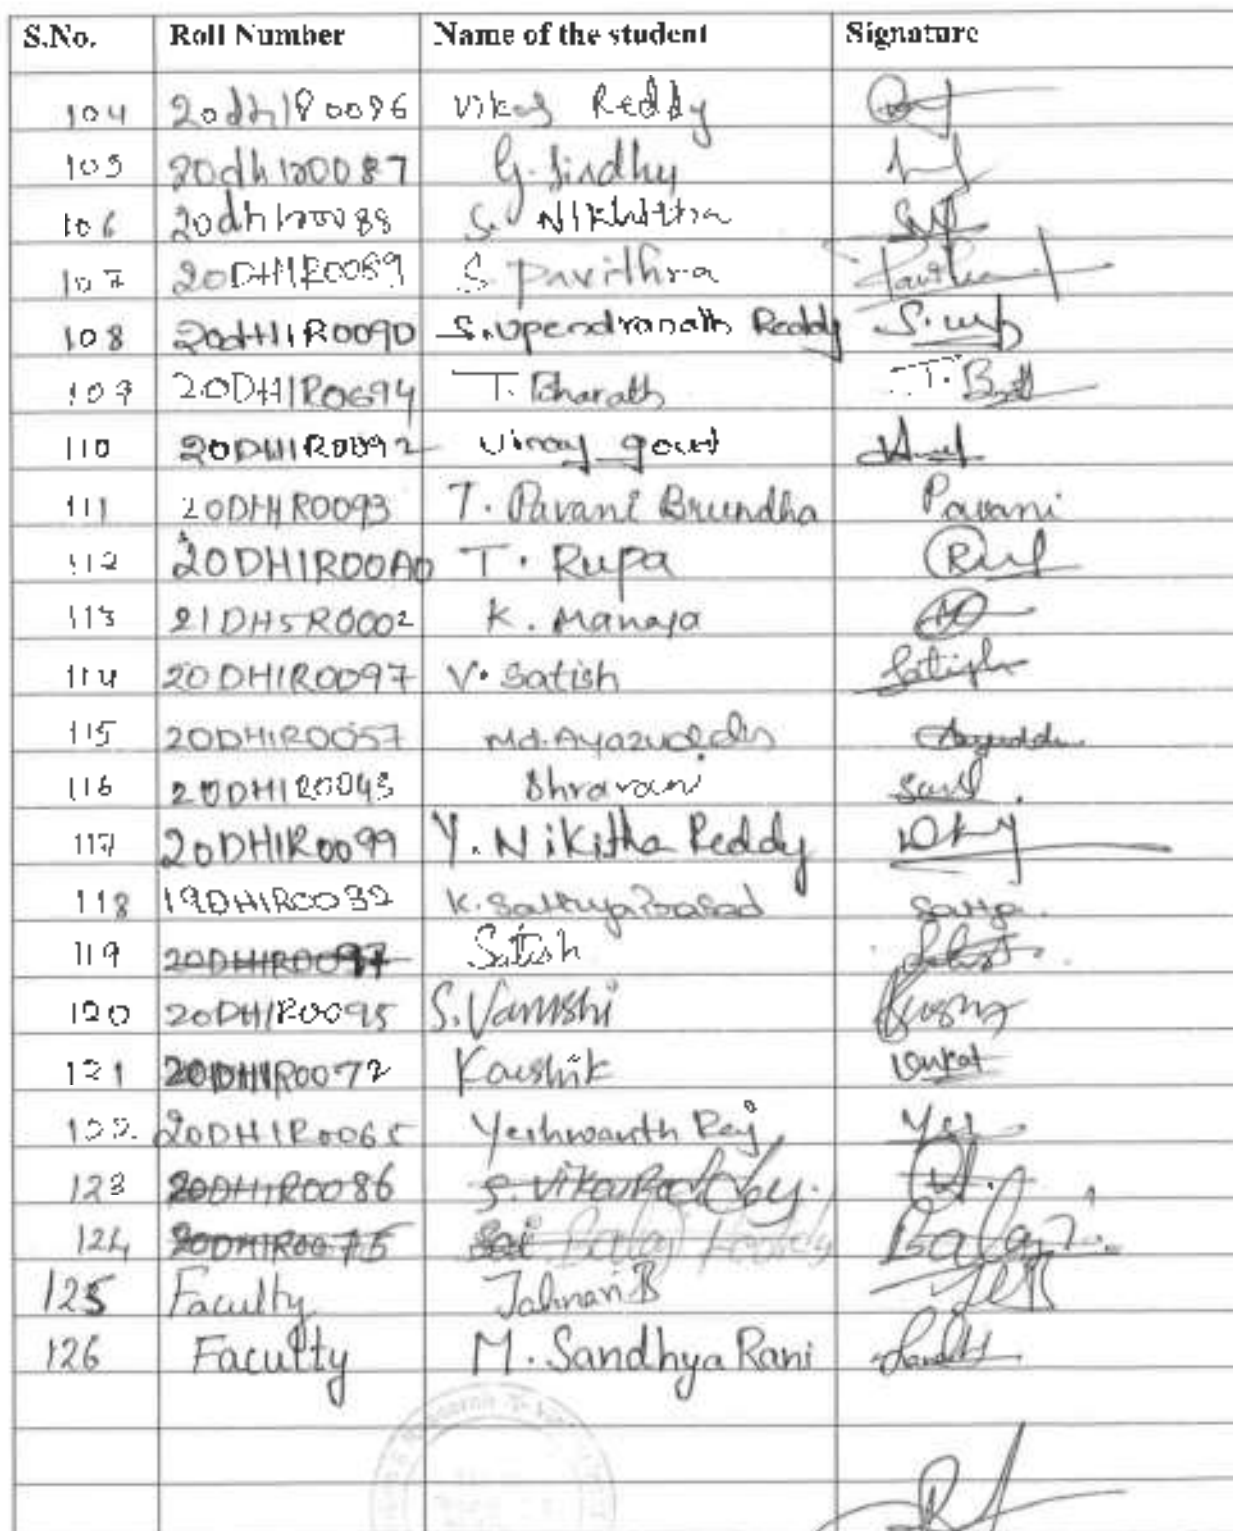 S.No. Roll Number Name of the student Signature
104 20dh1R0086 Vikas Reddy
105 20dh1R0087 G. Sindhu
106 20dh1R0088 S. Nikhitha
107 20DH1R0089 S. Pavithra Pavithra
108 20dH1R0090 S. Upendranath Reddy
109 20DH1R0694 T. Bharath
110 20DH1R0092 Vinay goud
111 20DH1R0093 T. Pavani Brundha Pavani
112 20DH1R00A0 T. Rupa
113 21DH5R0002 K. Manasa
114 20DH1R0097 V. Satish Satish
115 20DH1R0057 Md. Ayazuddin
116 20DH1R0043 Shravani
117 20DH1R0099 Y. Nikitha Reddy
118 19DH1R0032 K. Sathya Prasad Satya.
119 20DH1R0097 Satish
120 20DH1R0095 S. Vamshi
121 20DH1R0072 Kaushik Venkat
122. 20DH1R0065 Yeshwanth Raj Yes
123 20DH1R0086 S. Vikas Reddy.
124 20DH1R0075 Sai Balaji Reddy Balaji.
125 Faculty Jahnavi B
126 Faculty M. Sandhya Rani